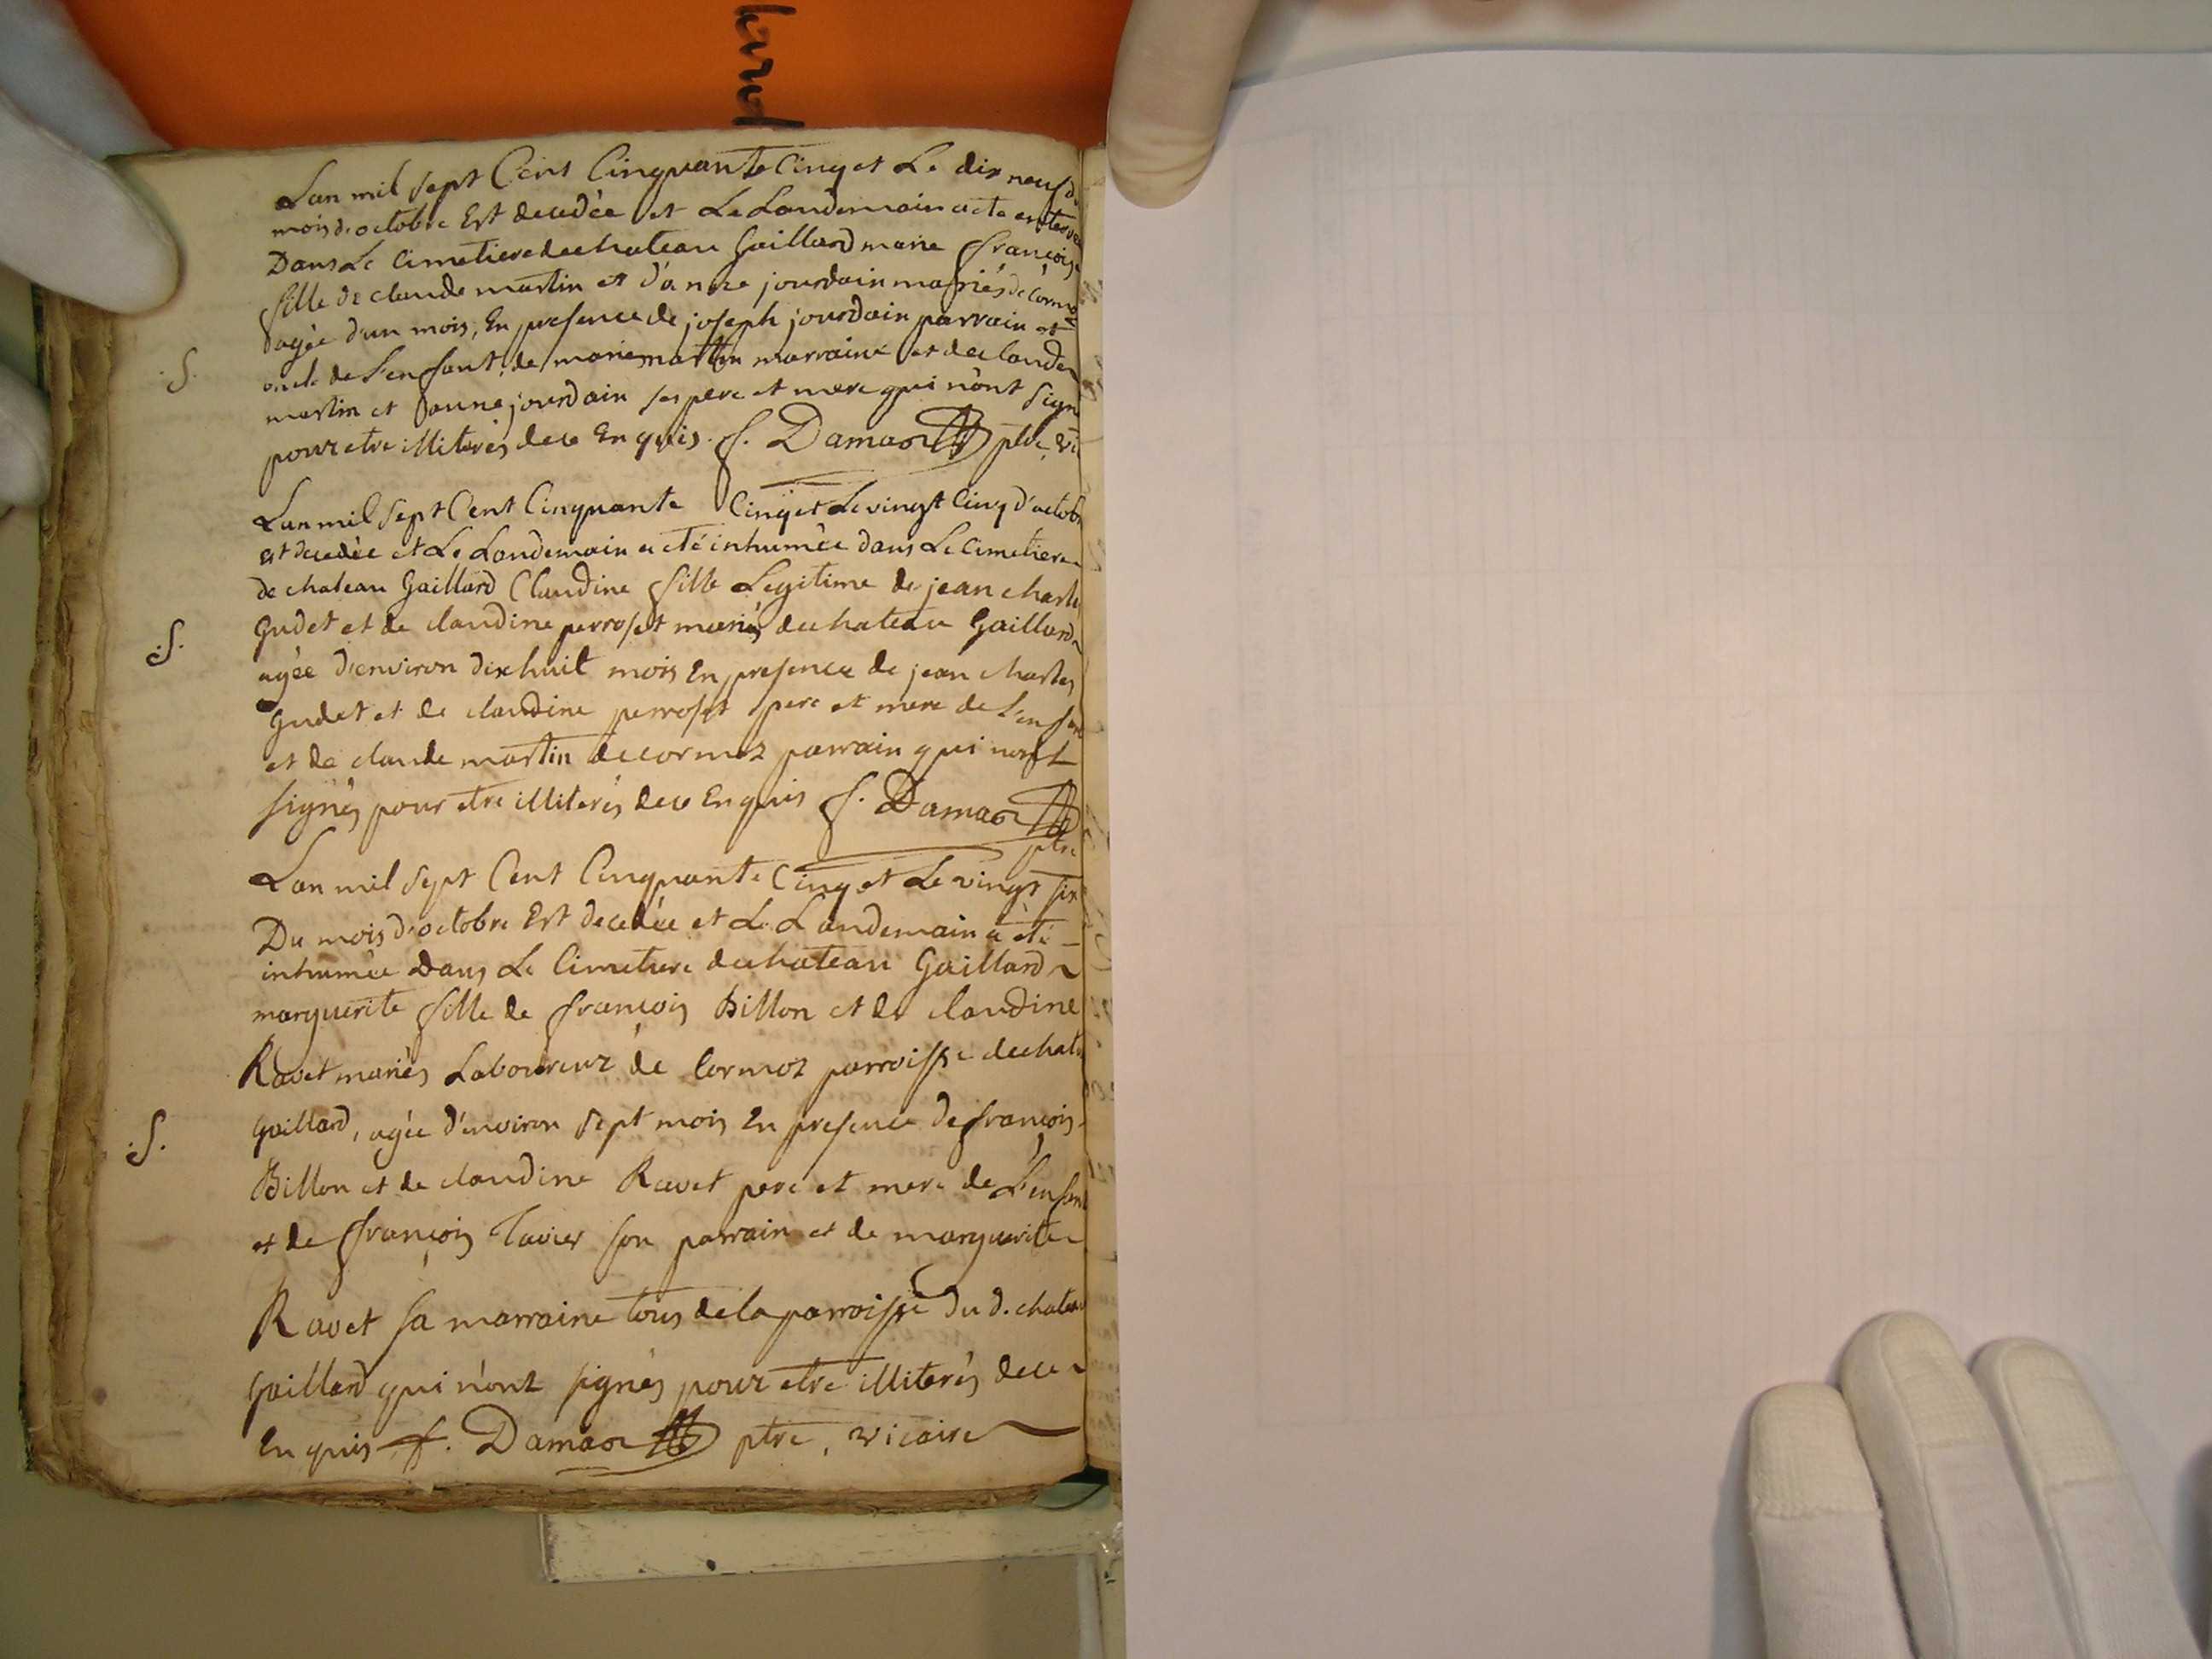 Lan mil sept Cent Cinquante Cinq et Le dix neuf du
mois d'octobre Est decedée et Le Landemain a ete enterrée
Dans Le Cimetiere de chateau Gaillard marie françoise
fille de claude martin et d'anne jourdain mariés de Cormoz
agée d'un mois, En presence de joseph jourdain parrain et
oncle de L'enfant, de marie martin marraine et de claude
martin et d'anne jourdain ses pere et mere qui n'ont signé
pour etre illiterés de ce Enquis. f. Damaz ptre, vic
Lan mil sept Cent Cinquante Cinq et Le vingt Cinq d'octobre
est decedée et Le Landemain a eté inhumée dans Le Cimetiere
de chateau Gaillard Claudine fille Legitime de jean charles
Gudet et de claudine perroset mariés de chateau Gaillard
agée d'environ dix huit mois En presence de jean charles
Gudet et de claudine perroset pere et mere de L'enfant
et de claude martin de cormoz parrain qui n'ont
signés pour etre illiterés de ce Enquis f. Damaz
ptre
Lan mil sept Cent Cinquante Cinq et Le vingt six
Du mois d'octobre Est decedée et Le Landemain a eté
inhumée Dans Le Cimetiere de chateau Gaillard
marguerite fille de françois Billon et de claudine
Ravet mariés Laboureur de Cormoz parroisse de chateau
Gaillard, agée d'environ sept mois En presence de françois
Billon et de claudine Ravet pere et mere de L'enfant
et de françois Tavier son parrain et de marguerite
Ravet sa marraine tous de la parroisse du d. chateau
Gaillard qui n'ont signés pour etre illiterés de ce
Enquis f. Damaz ptre, vicaire
.S.
.S.
.S.